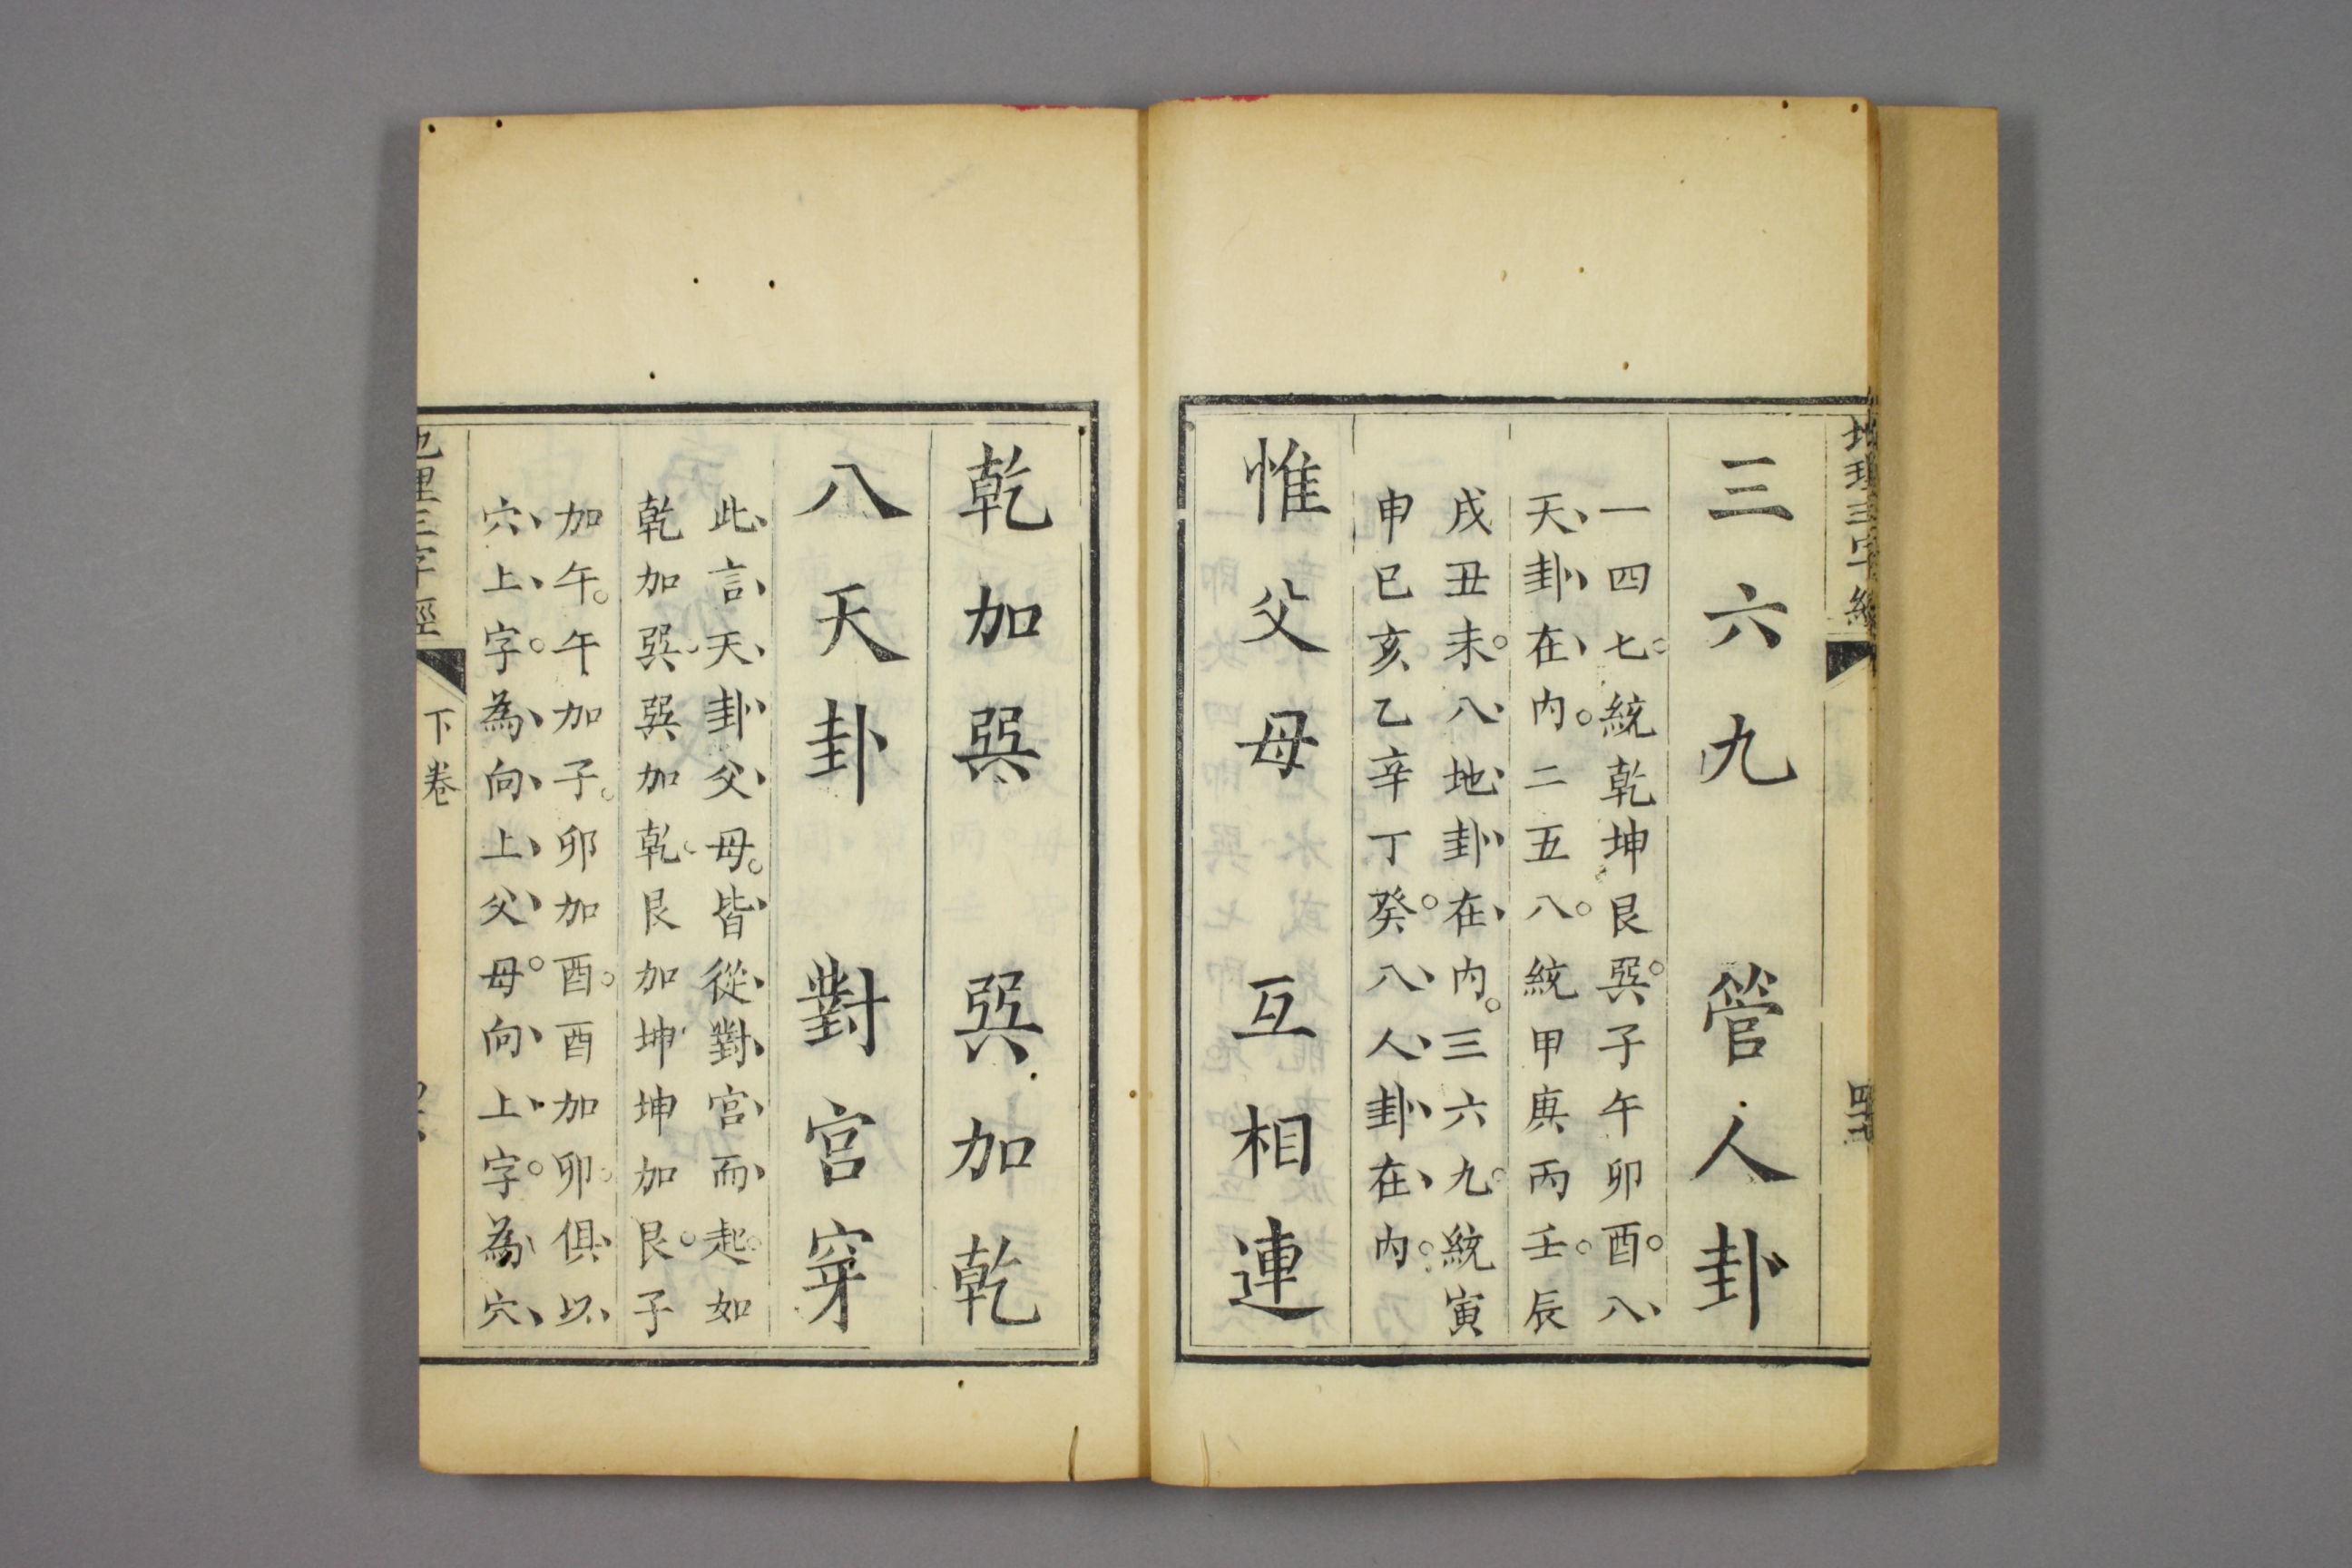 地理三字經
四十七
三六九　管人卦
一四七。統乾坤艮巽。子午卯酉。八
天卦在內。二五八。統甲庚丙壬。辰
戌丑未。八地卦在內。三六九。統寅
申巳亥乙辛丁癸。八人卦在內。
惟父母　互相連
乾加巽　巽加乾
八天卦　對宮穿
此言天卦父母。皆從對宮而起。如
乾加巽。巽加乾。艮加坤。坤加艮。子
加午。午加子。卯加酉。酉加卯。俱以
穴上字。為向上父母。向上字。為穴
地理三字經
下卷